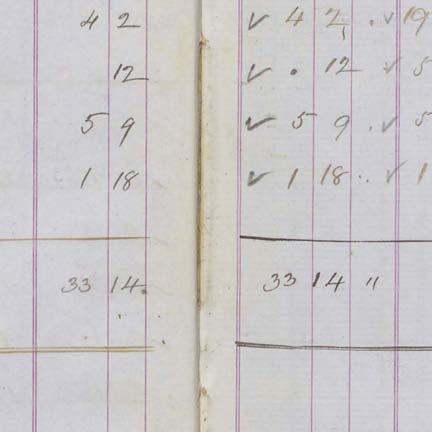 4 2
12
5 9
1 18
33 14
✓ 4 2 . ✓ 19
✓ . 12 ✓ 5
✓ 5 9 . ✓ 5
✓ 1 18 .. ✓ 1
33 14 "